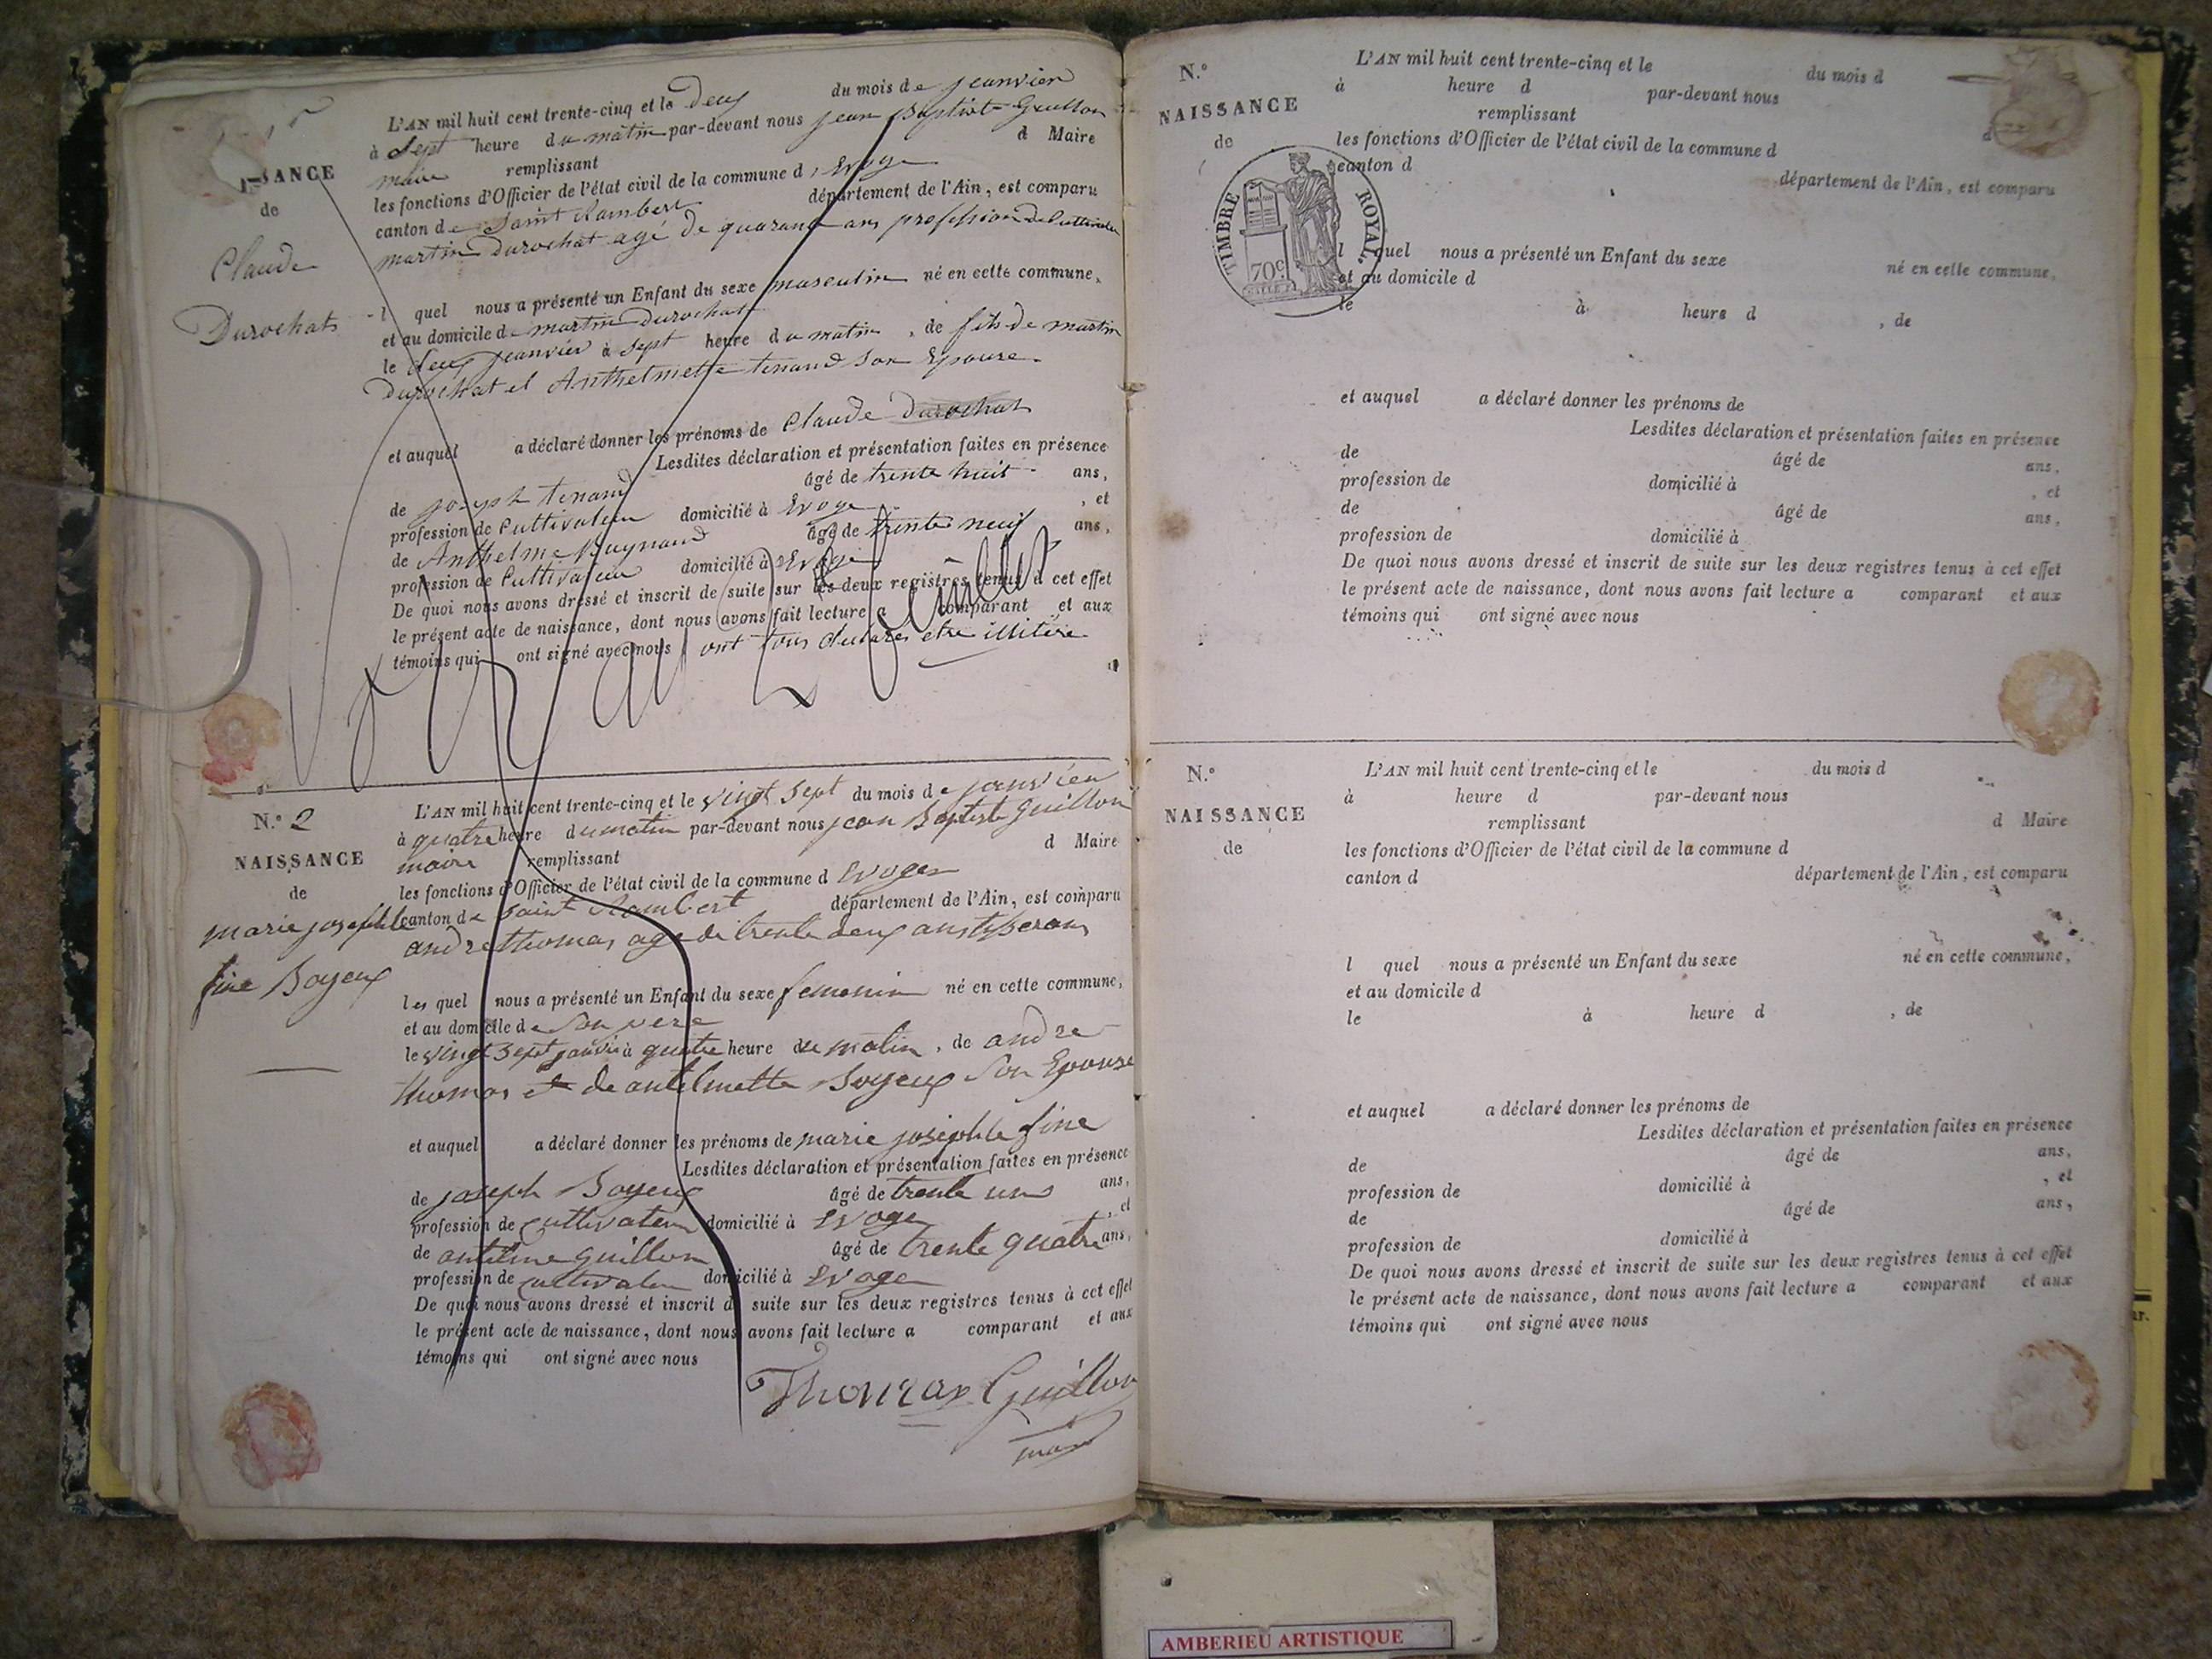 SANCE
de
Claude
Durochat
L'AN mil huit cent trente-cinq et le Deux du mois de jeanvier
à Sept heure du matin par-devant nous jean Baptiste Guillon
maire remplissant d Maire
les fonctions d'Officier de l'état civil de la commune d Evoge
canton de Saint Rambert département de l'Ain, est comparu
martin Durochat agé de quarante ans profession de Cultivateur
l quel nous a présenté un Enfant du sexe masculin né en cette commune,
et au domicile de martin Durochat
le deux jeanvier à Sept heure du matin, de fils de martin
Durochat et Anthelmette tenand Son Epouse
et auquel a déclaré donner les prénoms de Claude Durochat
Lesdites déclaration et présentation faites en présence
de joseph tenand âgé de trente huit ans,
profession de Cultivateur domicilié à Evoge, et
de Anthelme Buynand âgé de trente neuf ans,
profession de Cultivateur domicilié à Evoge
De quoi nous avons dressé et inscrit de suite sur les deux registres tenus à cet effet
le présent acte de naissance, dont nous avons fait lecture a comparant et aux
témoins qui ont signé avec nous ont tous declarés etre illitére
N.° 2
NAISSANCE
de
marie josephle
fine Boyeux
L'AN mil huit cent trente-cinq et le vingt Sept du mois de janviér
à quatre heure du matin par-devant nous jean Baptiste Guillon
maire remplissant d Maire
les fonctions d'Officier de l'état civil de la commune d Evoges
canton de Saint Rambert département de l'Ain, est comparu
andre thomas age de trente deux ans tisserans
les quel nous a présenté un Enfant du sexe femenin né en cette commune,
et au domicile de Son pere
le vingt Sept janvie à quatre heure du matin, de andre
thomas et de antelmette Boyeux Son Epouse
et auquel a déclaré donner les prénoms de marie josephle fine
Lesdites déclaration et présentation faites en présence
de joseph Boyeux âgé de trente uns ans,
profession de cultivateur domicilié à Evoge, et
de antelme Guillon âgé de trente quatre ans,
profession de cultivateur domicilié à Evoge
De quoi nous avons dressé et inscrit de suite sur les deux registres tenus à cet effet
le présent acte de naissance, dont nous avons fait lecture a comparant et aux
témoins qui ont signé avec nous
Thomas Guillon
maire
N.°
NAISSANCE
de
TIMBRE ROYAL.
70c
L'AN mil huit cent trente-cinq et le du mois d
à heure d par-devant nous
remplissant d
les fonctions d'Officier de l'état civil de la commune d
canton d département de l'Ain, est comparu
l quel nous a présenté un Enfant du sexe né en cette commune,
et au domicile d
le à heure d , de
et auquel a déclaré donner les prénoms de
Lesdites déclaration et présentation faites en présence
de âgé de ans,
profession de domicilié à , et
de âgé de ans,
profession de domicilié à
De quoi nous avons dressé et inscrit de suite sur les deux registres tenus à cet effet
le présent acte de naissance, dont nous avons fait lecture a comparant et aux
témoins qui ont signé avec nous
N.°
NAISSANCE
de
L'AN mil huit cent trente-cinq et le du mois d
à heure d par-devant nous
remplissant d Maire
les fonctions d'Officier de l'état civil de la commune d
canton d département de l'Ain, est comparu
l quel nous a présenté un Enfant du sexe né en cette commune,
et au domicile d
le à heure d , de
et auquel a déclaré donner les prénoms de
Lesdites déclaration et présentation faites en présence
de âgé de ans,
profession de domicilié à , et
de âgé de ans,
profession de domicilié à
De quoi nous avons dressé et inscrit de suite sur les deux registres tenus à cet effet
le présent acte de naissance, dont nous avons fait lecture a comparant et aux
témoins qui ont signé avec nous
AMBERIEU ARTISTIQUE